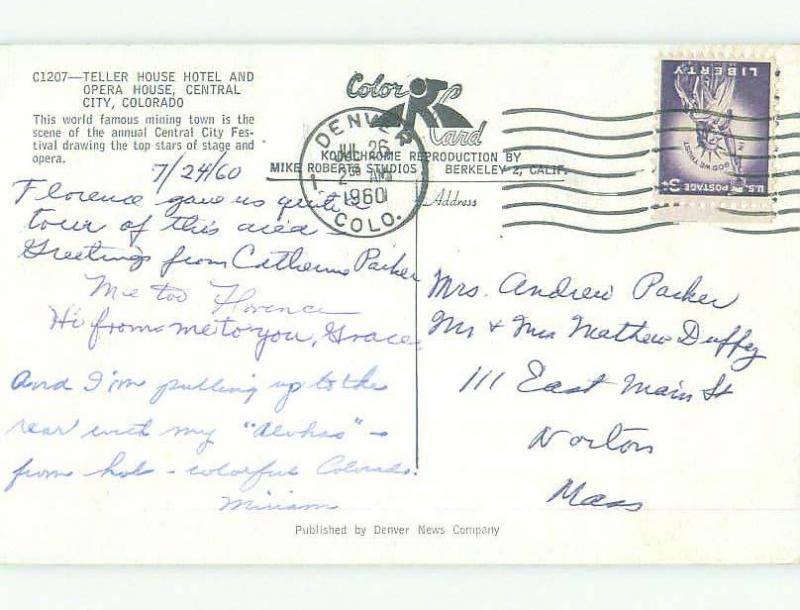 C1207—TELLER HOUSE HOTEL AND
OPERA HOUSE, CENTRAL
CITY, COLORADO
This world famous mining town is the
scene of the annual Central City Fes-
tival drawing the top stars of stage and
opera.
7/24/60
Florence gave us quite a
tour of this area –
Greetings from Catherine Parker
Me too Florence
Hi from me to you, Grace
And I'm pulling up to the
rear with my "Alohas" –
from hot - colorful Colorado.
Miriam
Color
Card
KODACHROME REPRODUCTION BY
MIKE ROBERTS STUDIOS BERKELEY 2, CALIF.
DENVER
JUL 26
1960
COLO.
Address
LIBERTY
IN GOD WE TRUST
U.S. POSTAGE 3¢
Mrs. Andrew Parker
Mr & Mrs Mathew Duffy
111 East Main St
Norton
Mass
Published by Denver News Company